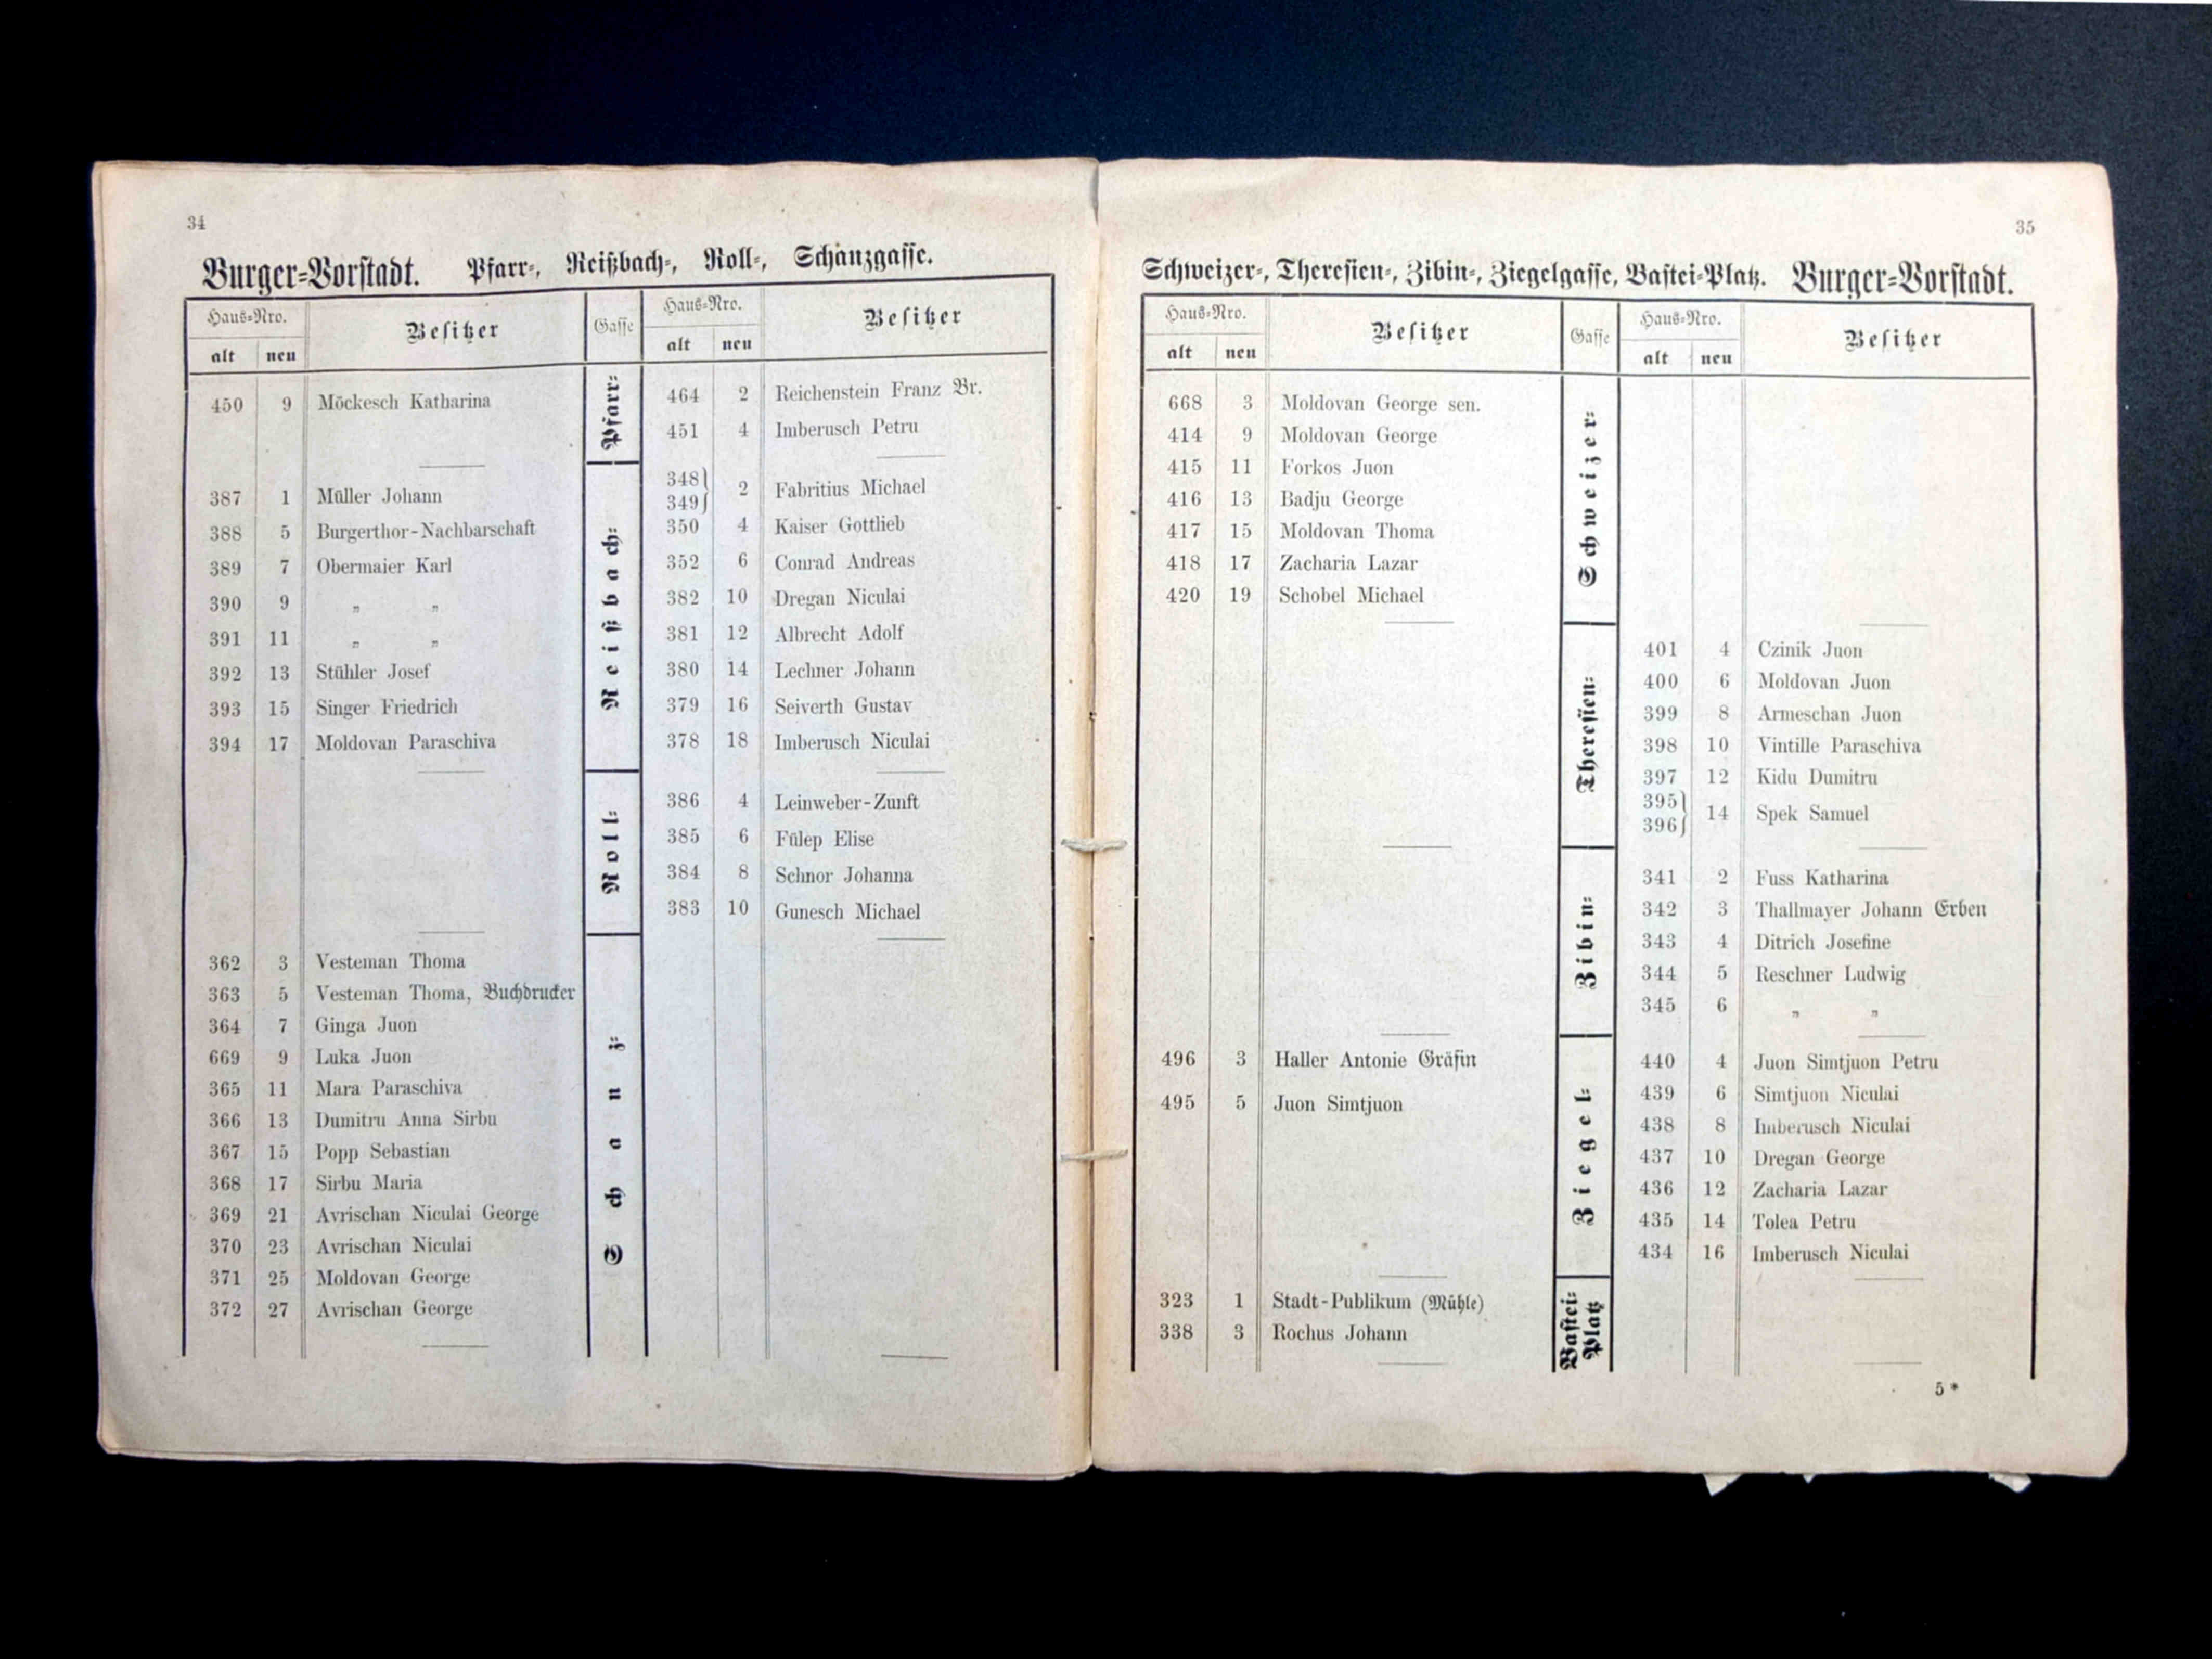 34
Burger-Vorstadt. Pfarr-, Reißbach-, Roll-, Schanzgasse.
Haus-Nro. Besitzer Gasse Haus-Nro. Besitzer
alt neu alt neu
Pfarr-
450 9 Möckesch Katharina
464 2 Reichenstein Franz Br.
451 4 Imberusch Petru
Reißbach-
387 1 Müller Johann
388 5 Burgerthor-Nachbarschaft
389 7 Obermaier Karl
390 9 „ „
391 11 „ „
392 13 Stühler Josef
393 15 Singer Friedrich
394 17 Moldovan Paraschiva
348 349 2 Fabritius Michael
350 4 Kaiser Gottlieb
352 6 Conrad Andreas
382 10 Dregan Niculai
381 12 Albrecht Adolf
380 14 Lechner Johann
379 16 Seiverth Gustav
378 18 Imberusch Niculai
Roll-
386 4 Leinweber-Zunft
385 6 Fülep Elise
384 8 Schnor Johanna
383 10 Gunesch Michael
Schanz-
362 3 Vesteman Thoma
363 5 Vesteman Thoma, Buchdrucker
364 7 Ginga Juon
669 9 Luka Juon
365 11 Mara Paraschiva
366 13 Dumitru Anna Sirbu
367 15 Popp Sebastian
368 17 Sirbu Maria
369 21 Avrischan Niculai George
370 23 Avrischan Niculai
371 25 Moldovan George
372 27 Avrischan George
35
Schweizer-, Theresien-, Zibin-, Ziegelgasse, Bastei-Platz. Burger-Vorstadt.
Haus-Nro. Besitzer Gasse Haus-Nro. Besitzer
alt neu alt neu
Schweizer-
668 3 Moldovan George sen.
414 9 Moldovan George
415 11 Forkos Juon
416 13 Badju George
417 15 Moldovan Thoma
418 17 Zacharia Lazar
420 19 Schobel Michael
Theresien-
401 4 Czinik Juon
400 6 Moldovan Juon
399 8 Armeschan Juon
398 10 Vintille Paraschiva
397 12 Kidu Dumitru
395 396 14 Spek Samuel
Zibin-
341 2 Fuss Katharina
342 3 Thallmayer Johann Erben
343 4 Ditrich Josefine
344 5 Reschner Ludwig
345 6 „ „
Ziegel-
496 3 Haller Antonie Gräfin
495 5 Juon Simtjuon
440 4 Juon Simtjuon Petru
439 6 Simtjuon Niculai
438 8 Imberusch Niculai
437 10 Dregan George
436 12 Zacharia Lazar
435 14 Tolea Petru
434 16 Imberusch Niculai
Bastei-
Platz
323 1 Stadt-Publikum (Mühle)
338 3 Rochus Johann
5 *